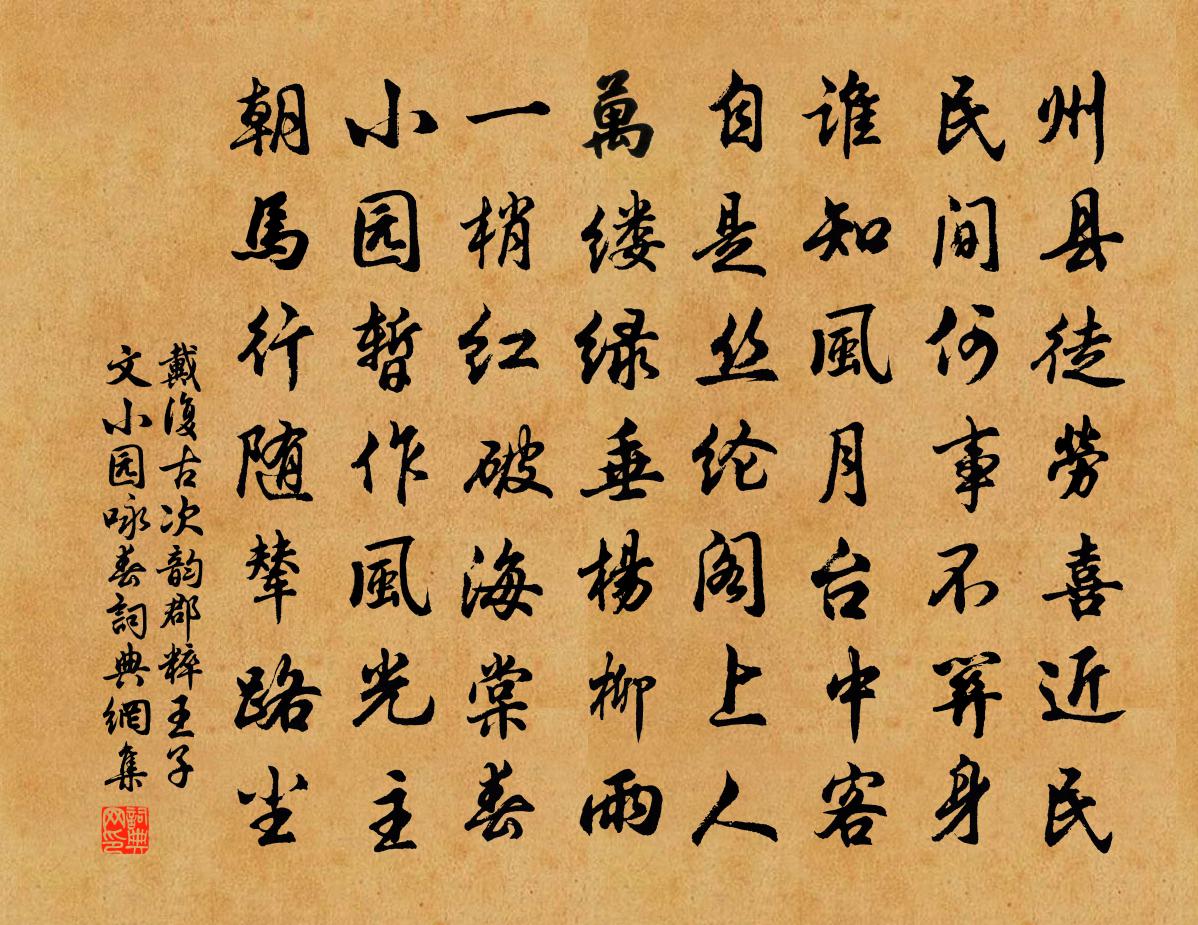 州县徒劳喜近民
民间何事不关身
谁知風月台中客
自是丝纶阁上人
萬缕绿垂楊柳雨
一梢红破海棠春
小园暫作風光主
朝馬行随辇路尘
戴復古次韵郡粹王子
文小园咏春詞典網集
詞典网印